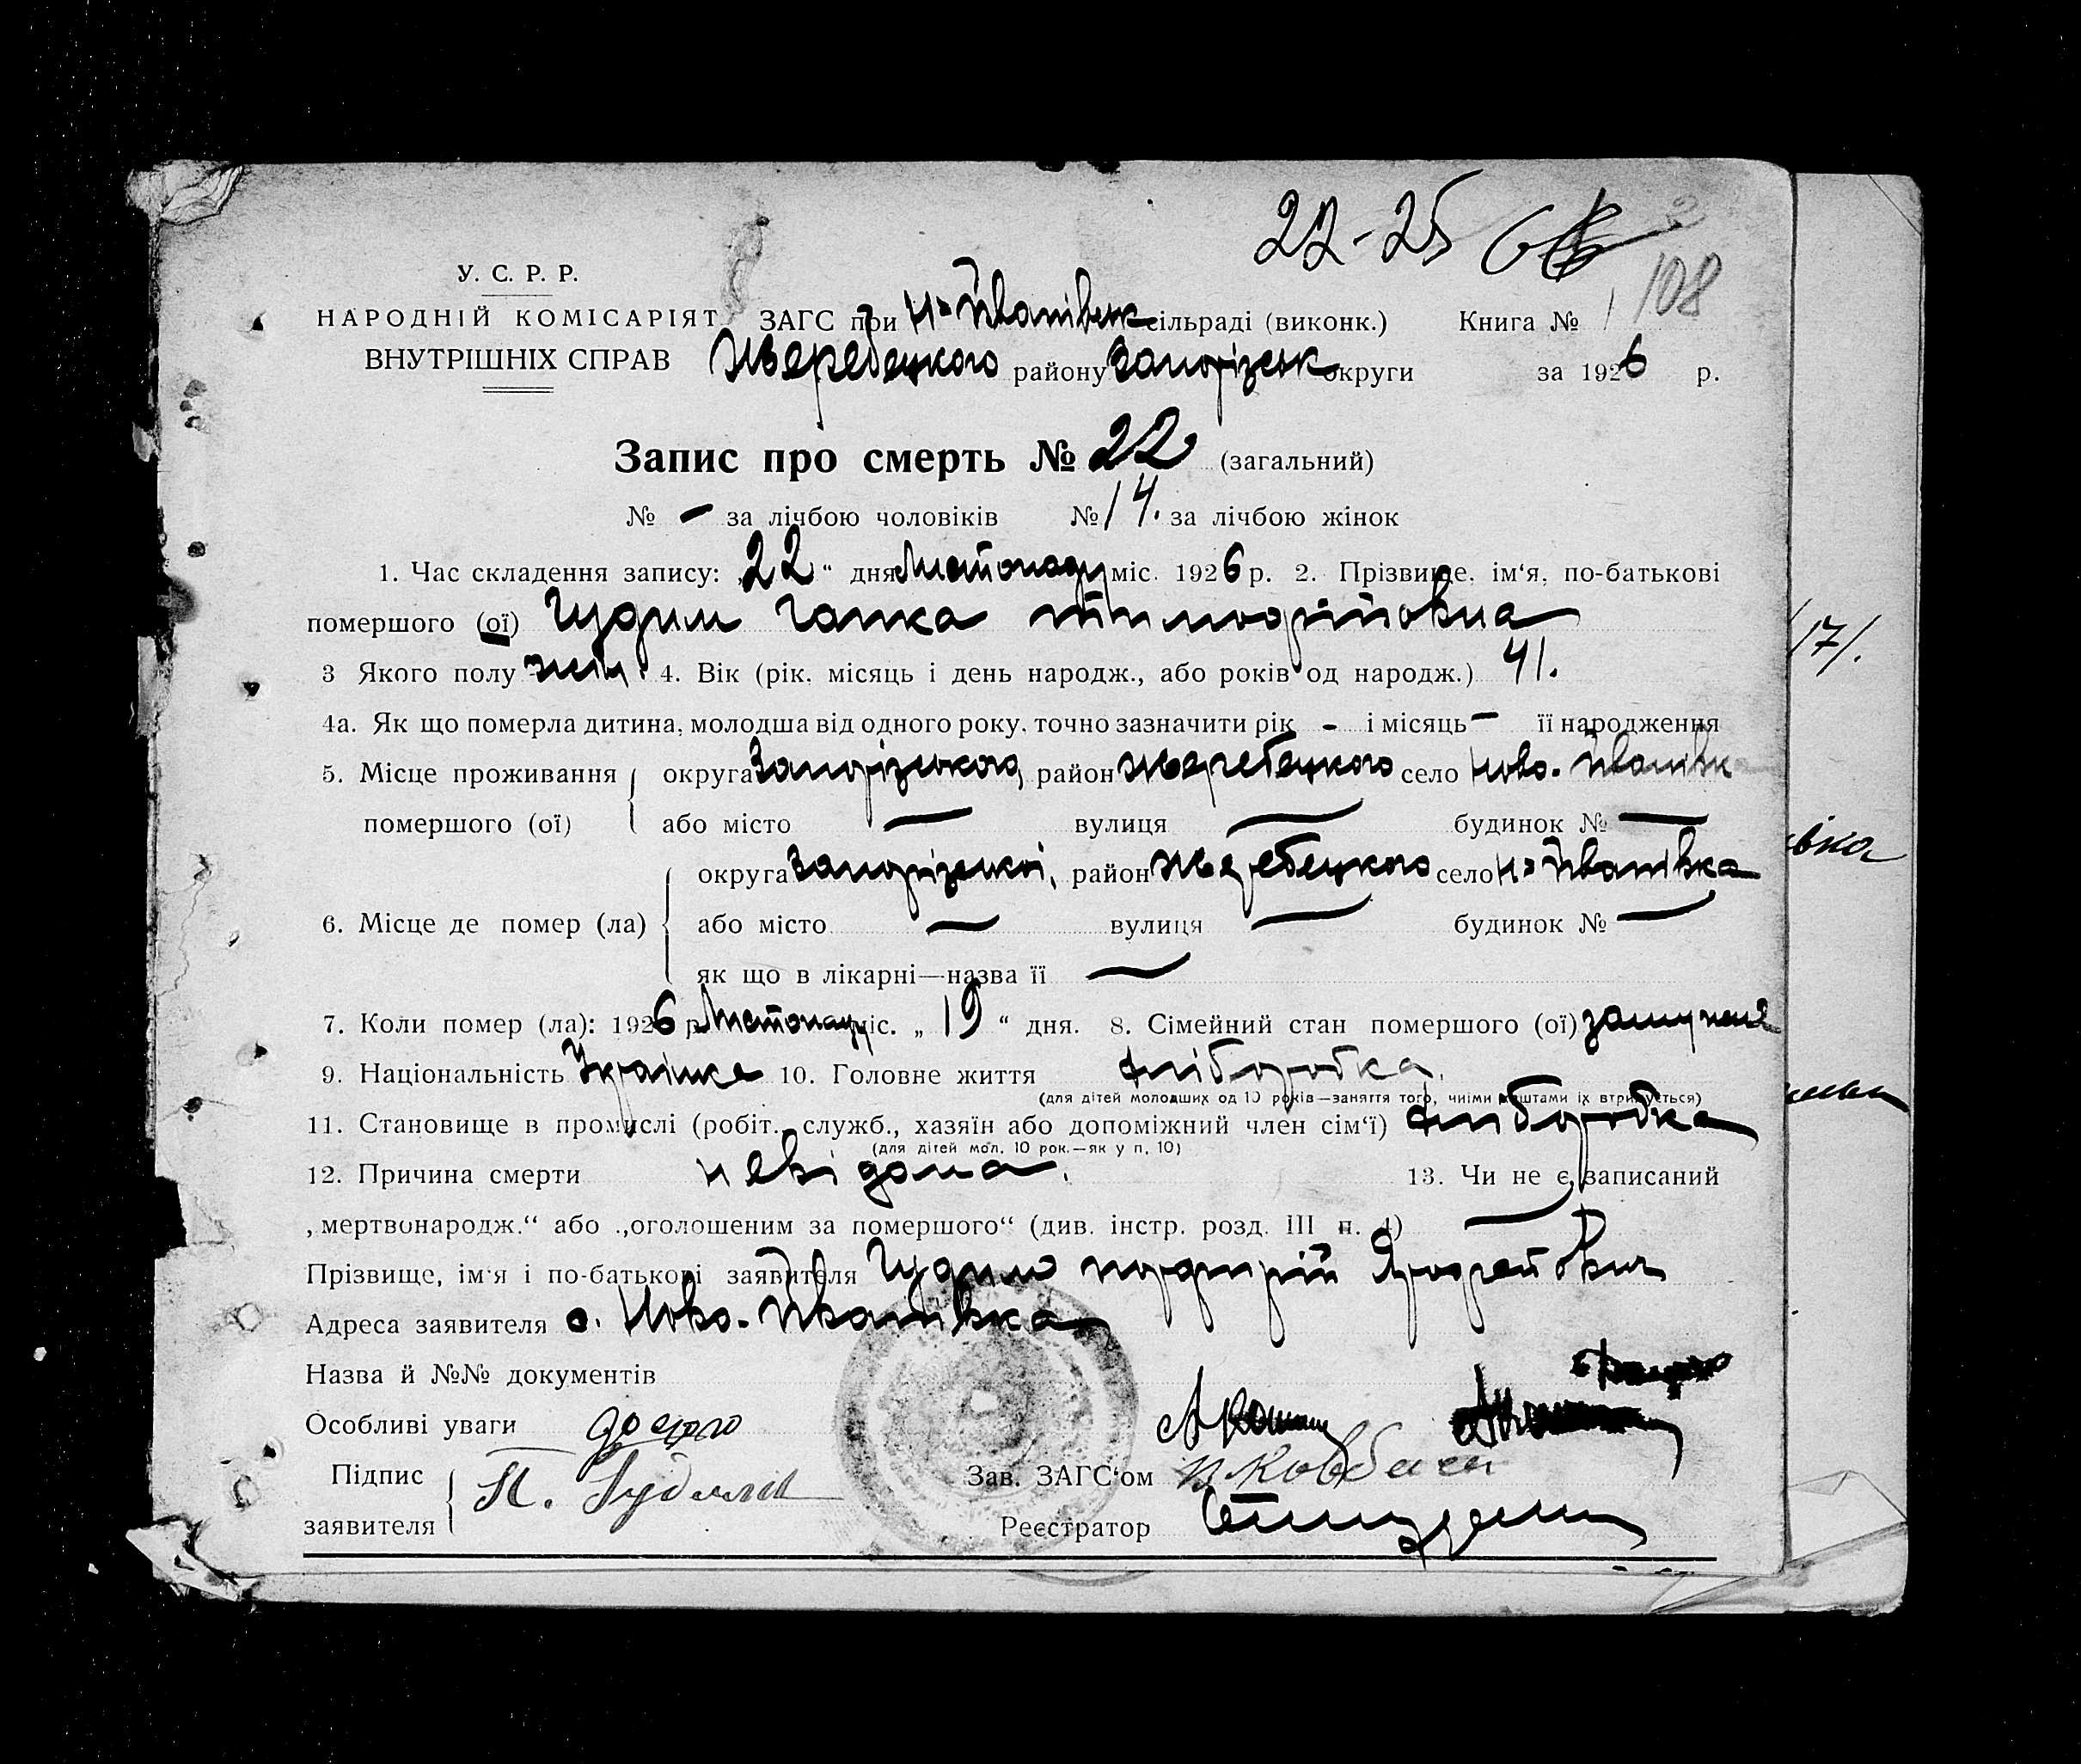 22-25
У. С. Р. Р.
108
НАРОДНІЙ КОМІСАРІЯТ ЗАГС при Н-Іванівськ сільраді (виконк.) Книга № 1
ВНУТРІШНІХ СПРАВ Жеребецкого району Запорізськ округи за 1926 р.
Запис про смерть № 22 (загальний)
№ – за лічбою чоловіків № 14. за лічбою жінок
1. Час складення запису: „22“ дня Листопаду міс. 1926 р. 2. Прізвище, ім‘я, по-батькові
помершого (ої) Гудим Ганка Тимофіївна
3 Якого полу жін. 4. Вік (рік, місяць і день народж., або років од народж.) 41.
4а. Як що померла дитина, молодша від одного року, точно зазначити рік – і місяць – її народження
5. Місце проживання округа Запорізського, район Жеребецкого село Ново-Іванівка
помершого (ої) або місто — вулиця — будинок № —
округа Запорізської, район Жеребецкого село Н-Іванівка
6. Місце де помер (ла) або місто — вулиця — будинок № —
як що в лікарні—назва її —
7. Коли помер (ла): 1926 р. Листопаду міс. „19“ дня. 8. Сімейний стан помершого (ої)
9. Національність Українка 10. Головне життя хліборобка.
(для дітей молодших од 10 років—заняття того, чиїми коштами їх втримується)
11. Становище в промислі (робіт., служб., хазяїн або допоміжний член сім‘ї) хліборобка
(для дітей мол. 10 рок.—як у п. 10)
12. Причина смерти невідома. 13. Чи не є записаний
„мертвонародж.“ або „оголошеним за помершого“ (див. інстр. розд. III п. 4) —
Прізвище, ім‘я і по-батькові заявителя Гудим Порфирій
Адреса заявителя с. Ново-Іванівка
Назва й №№ документів
Особливі уваги
Підпис П. Гудыма Зав. ЗАГС‘ом
заявителя Реєстратор
17/.
івка